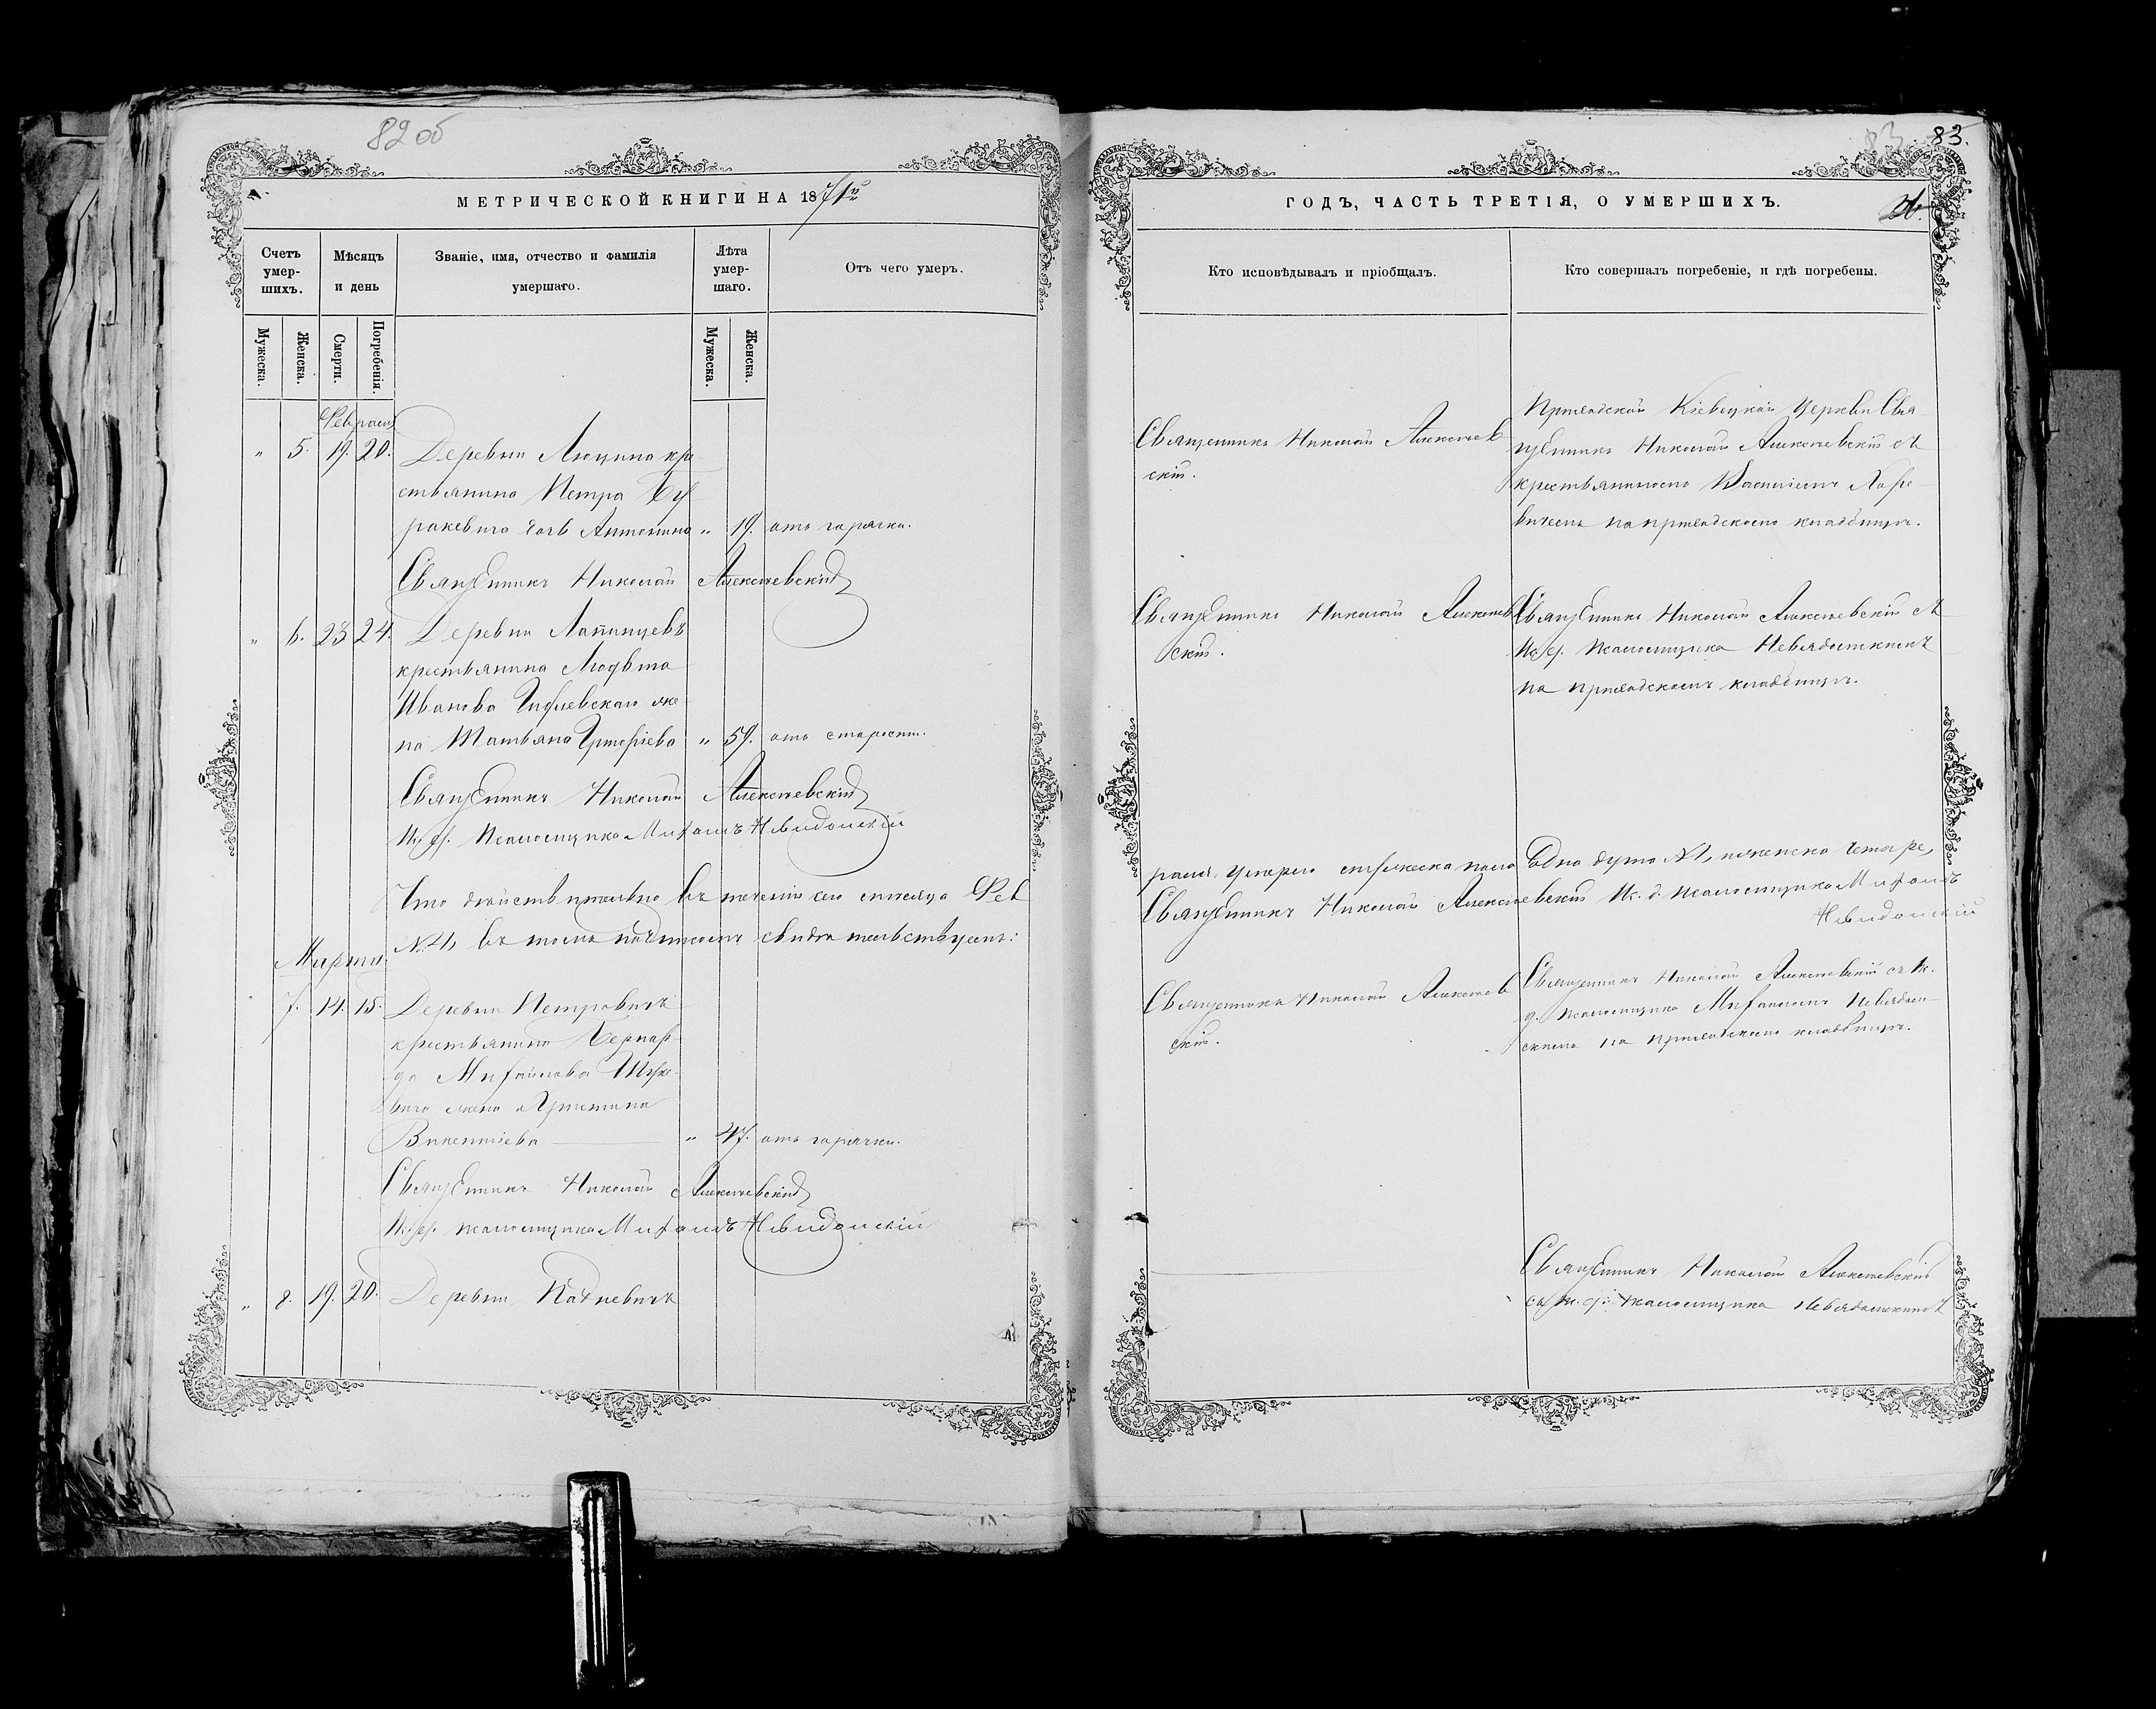 82 об
МЕТРИЧЕСКОЙ КНИГИ НА 187
Счетъ умер-шихъ.
Мѣсяцъ и день
Званіе, имя, отчество и фамилія умершаго.
Лѣта умер-шаго.
Отъ чего умеръ.
Мужеска.
Женска.
Смерти.
Погребенія.
Мужеска.
Женска.
Февраль
" 5. 19. 20. Деревни кре-
стьянина Петра Бу
ракевича дочь Антонина " 19. отъ горячки.
Священникъ Николай Алексѣевскій
" 6. 23 24. Деревни Лапинцевъ
крестьянина
Иванова же-
на Татьяна Григоріева " 59. отъ старости.
Священникъ Николай Алексѣевскій
И. д. Псаломщика Михаилъ Невядомскій
Что дѣйствительно въ теченіи сего мѣсяца Фев
№ 4, въ томъ свидѣтельствуемъ:
Мартъ.
" 7. 14. 15. Деревни Петровичъ
крестьянина Бернар-
да Михайлова
вича жена Христина
Викентіева " 47. отъ горячки.
Священникъ Николай Алексѣевскій
И. д. псаломщика Михаилъ Невядомскій
" 8. 19. 20. Деревни Пахневичъ
83.
ГОДЪ, ЧАСТЬ ТРЕТІЯ, О УМЕРШИХЪ.
Кто исповѣдывалъ и пріобщалъ.
Кто совершалъ погребеніе, и гдѣ погребены.
Священникъ Николай Алексѣев
скій.
Приходской Кіевецкой Церкви Свя-
щенникъ Николай Алексѣевскій съ
крестьяниномъ Василіемъ
на приходскомъ кладбищѣ.
Священникъ Николай Алексѣев
скій.
Священникъ Николай Алексѣевскій съ
И. д. Псаломщика Невядомскимъ
на приходскомъ кладбищѣ.
ралѣ, умерло мужеска пола одна душа № 1, женска четыре,
Священникъ Николай Алексѣевскій И. д. псаломщика Михаилъ
Невядомскій
Священникъ Николай Алексѣев
скій.
Священникъ Николай Алексѣевскій съ И.
д. псаломщика Михаиломъ Невядом-
скимъ на приходскомъ кладбищѣ.
Священникъ Николай Алексѣевскій
съ И. д. псаломщика Невядомскимъ